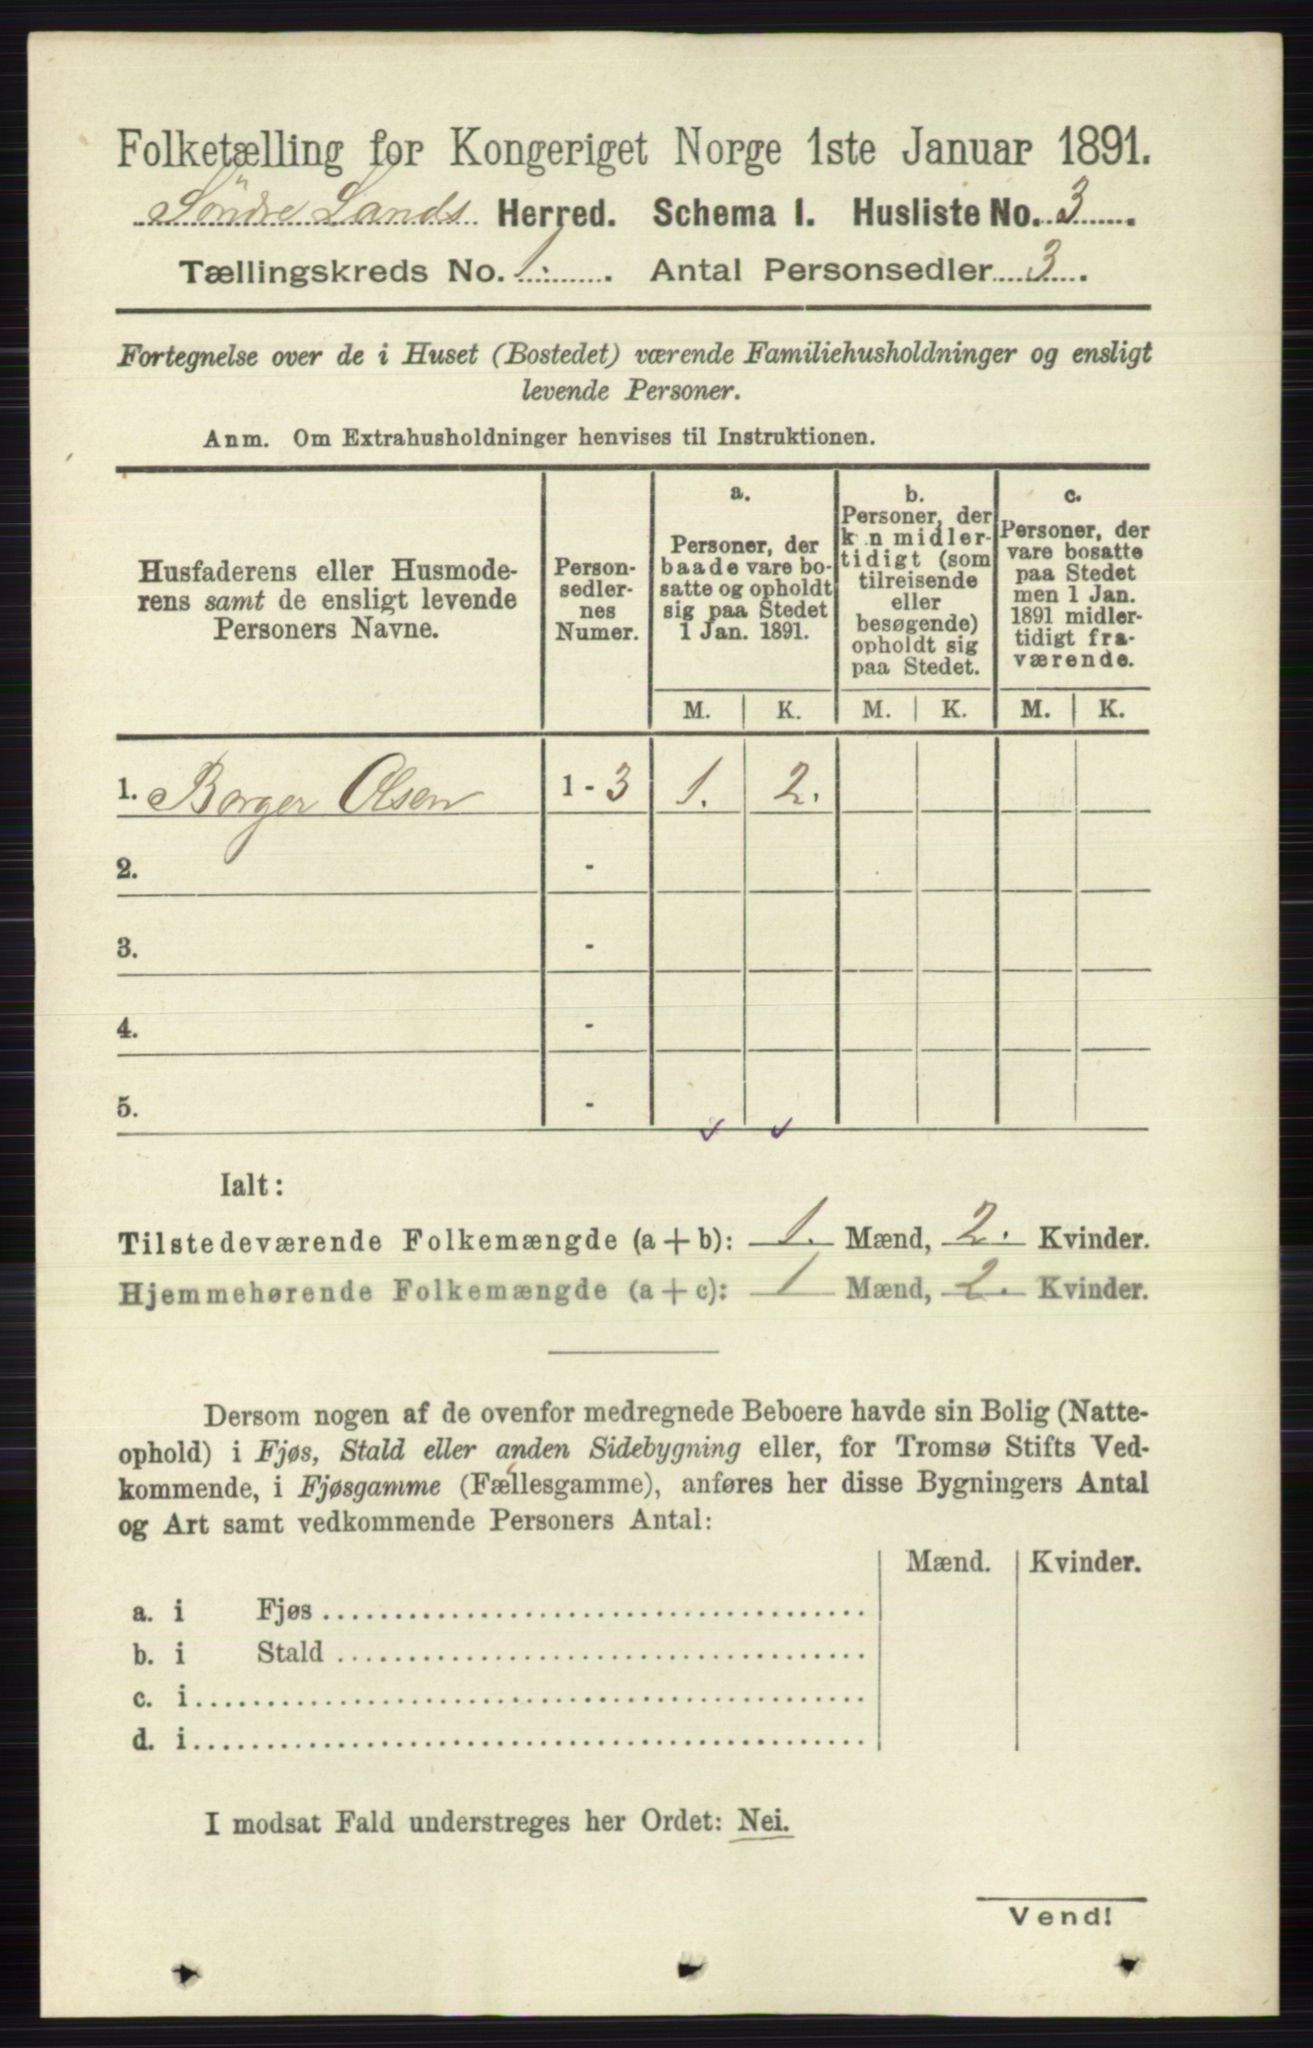 Folketælling for Kongeriget Norge 1ste Januar 1891.
Søndre Lands Herred. Schema I. Husliste No. 3.
Tællingskreds No. 1. Antal Personsedler 3.
Fortegnelse over de i Huset (Bostedet) værende Familiehusholdninger og ensligt
levende Personer.
Anm. Om Extrahusholdninger henvises til Instruktionen.
Husfaderens eller Husmode-
rens samt de ensligt levende
Personers Navne.
Person-
sedler-
nes
Numer.
a.
Personer, der
baade vare bo-
satte og opholdt
sig paa Stedet
1 Jan. 1891.
b.
Personer, der
k n midler-
tidigt (som
tilreisende
eller
besøgende)
opholdt sig
paa Stedet.
c.
Personer, der
vare bosatte
paa Stedet
men 1 Jan.
1891 midler-
tidigt fra-
værende.
M. K. M. K. M. K.
1. Borger Olsen 1 - 3 1. 2.
2. -
3. -
4. -
5. -
Ialt:
Tilstedeværende Folkemængde (a + b): 1. Mænd, 2. Kvinder.
Hjemmehørende Folkemængde (a + c): 1 Mænd, 2. Kvinder.
Dersom nogen af de ovenfor medregnede Beboere havde sin Bolig (Natte-
ophold) i Fjøs, Stald eller anden Sidebygning eller, for Tromsø Stifts Ved-
kommende, i Fjøsgamme (Fællesgamme), anføres her disse Bygningers Antal
og Art samt vedkommende Personers Antal:
Mænd. Kvinder.
a. i Fjøs
b. i Stald
c. i
d. i
I modsat Fald understreges her Ordet: Nei.
Vend!